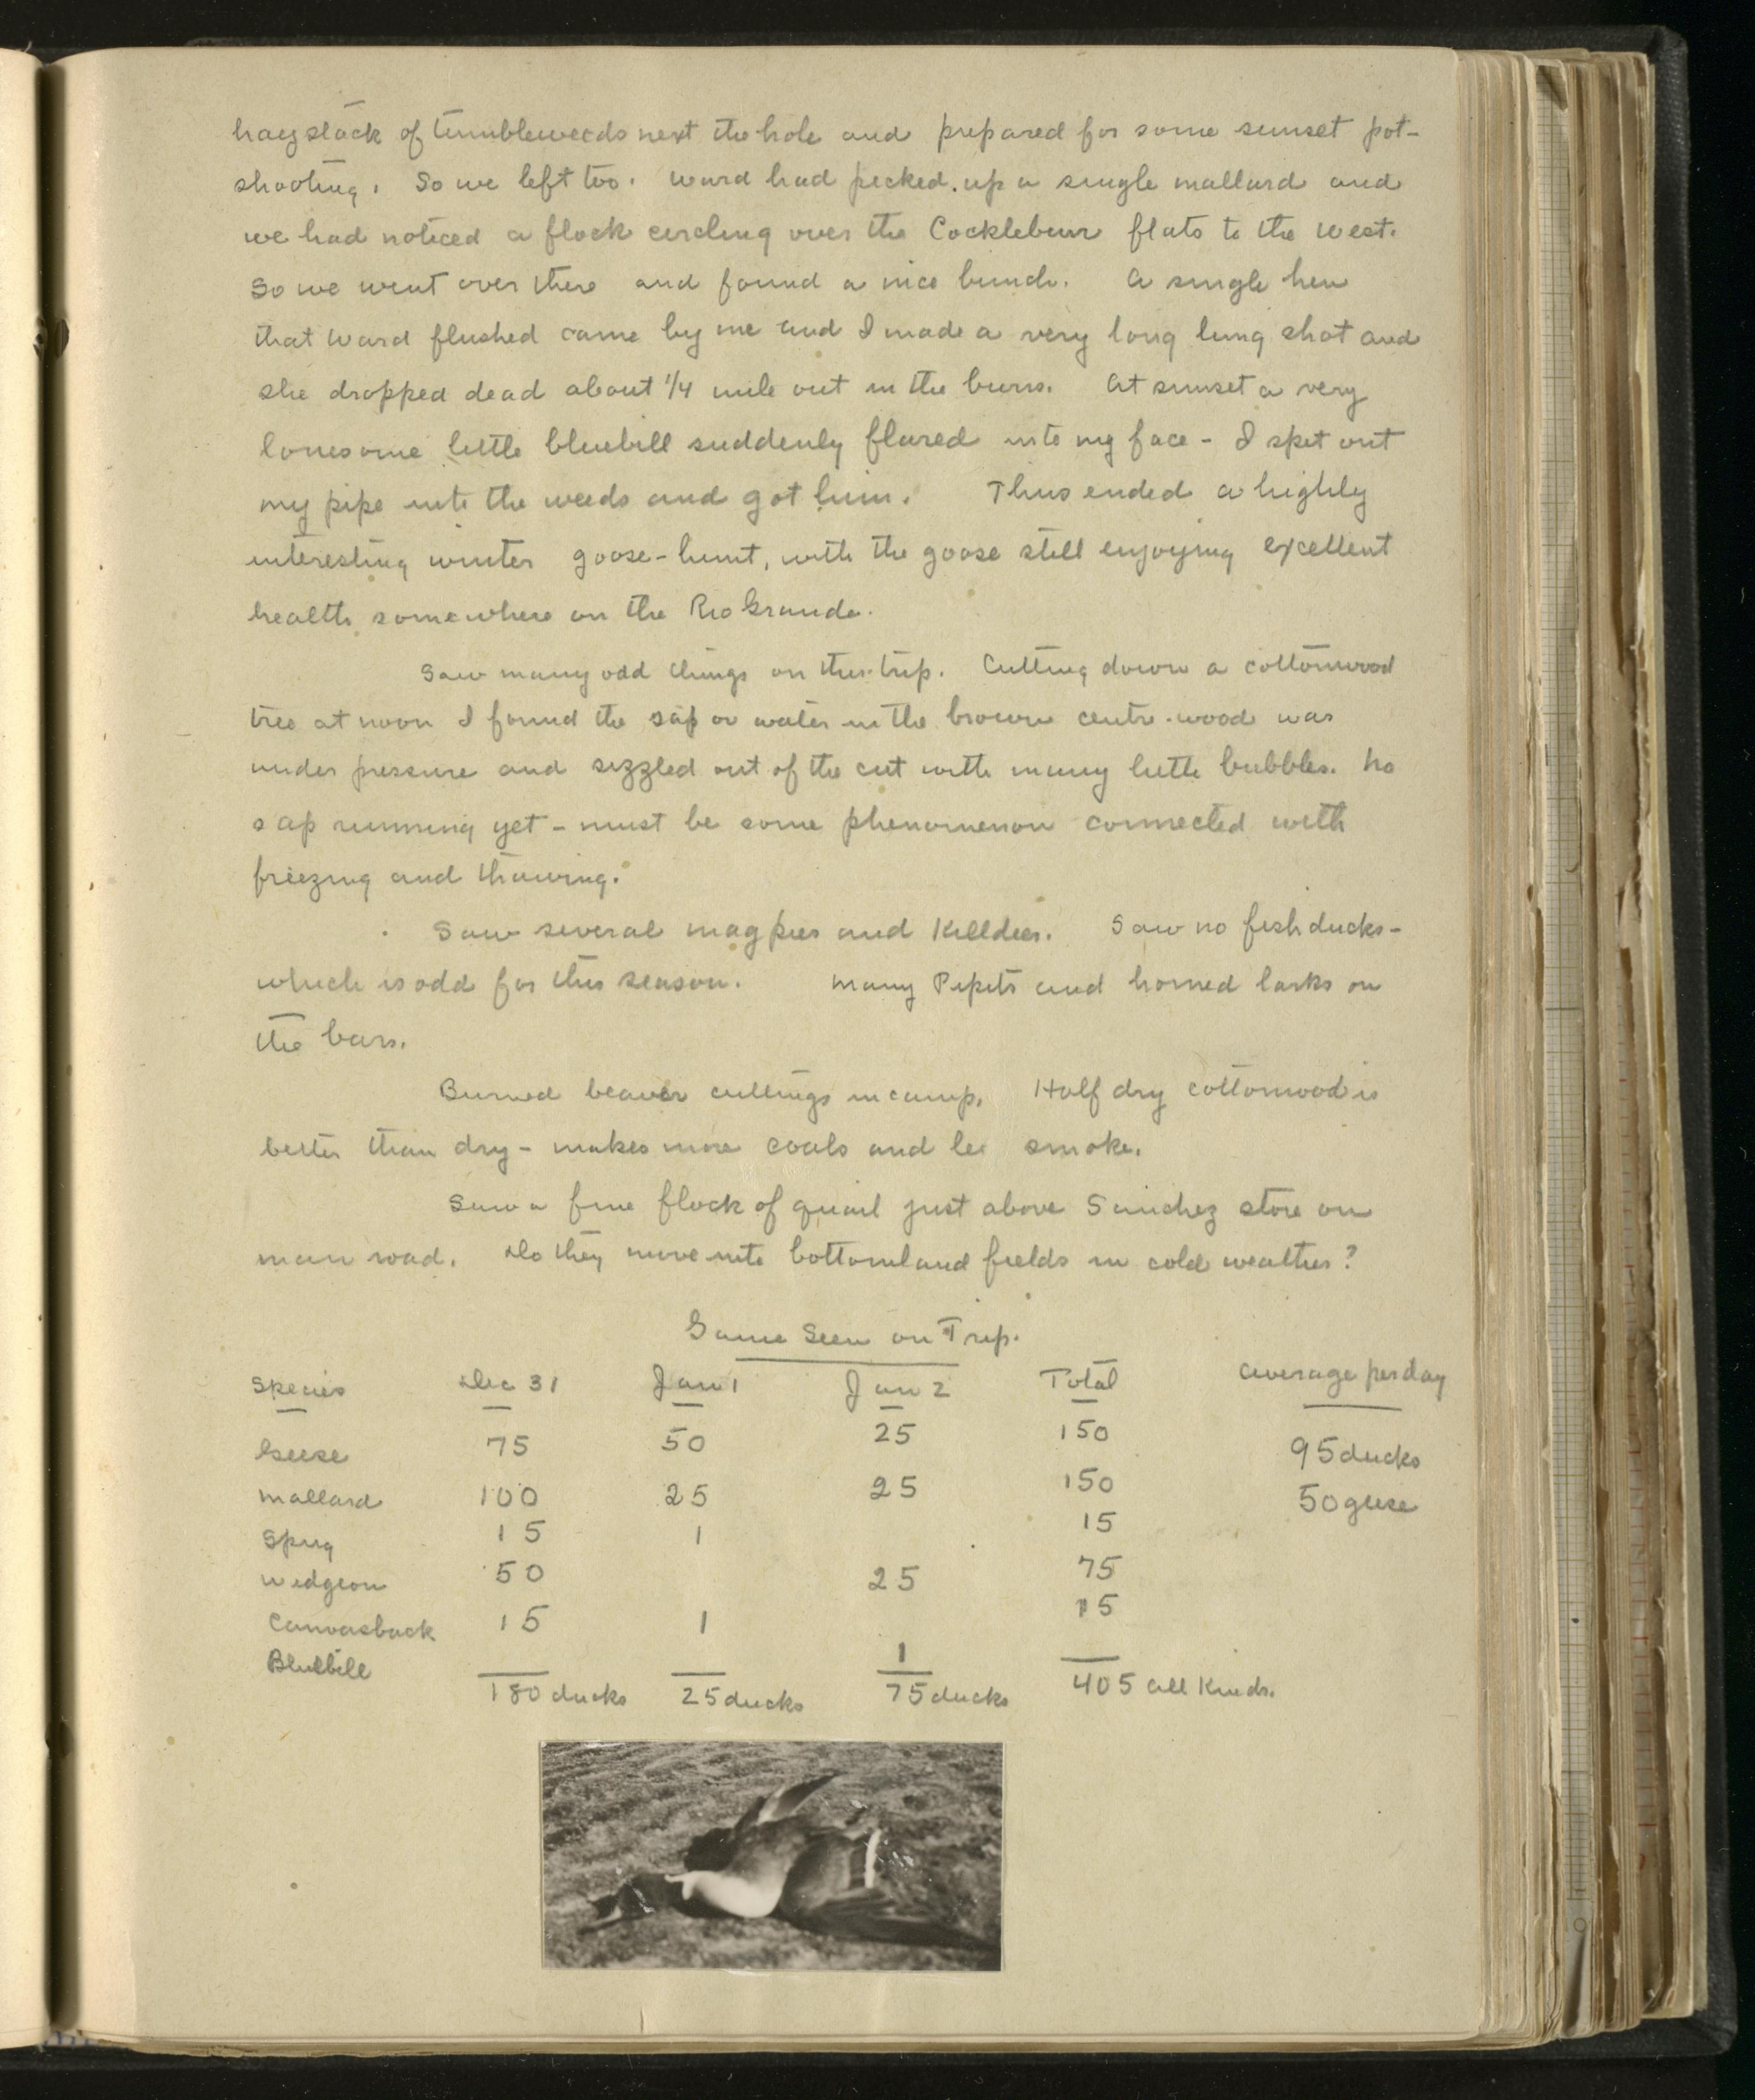 haystack of tumbleweeds next the hole and prepared for some sunset pot-
shooting. So we left too. Ward had picked up a single mallard and
we had noticed a flock circling over the Cocklebur flats to the west.
So we went over there and found a nice bunch. A single hen
that Ward flushed came by me and I made a very long lung shot and
she dropped dead about 1/4 mile out in the burrs. At sunset a very
lonesome little bluebill suddenly flared into my face - I spit out
my pipe into the weeds and got him. Thus ended a highly
interesting winter goose-hunt, with the goose still enjoying excellent
health somewhere on the Rio Grande.
Saw many odd things on this trip. Cutting down a cottonwood
tree at noon I found the sap or water in the brown centre-wood was
under pressure and sizzled out of the cut with many little bubbles. No
sap running yet - must be some phenomenon connected with
freezing and thawing.
Saw several magpies and Killdeer. Saw no fish ducks -
which is odd for this season. Many Pipits and horned larks on
the bars.
Burned beaver cuttings in camp. Half dry cottonwood is
better than dry - makes more coals and les smoke.
Saw a fine flock of quail just above Sanchez store on
main road. Do they move into bottomland fields in cold weather?
Game Seen on Trip.
Species Dec 31 Jan 1 Jan 2 Total Average per day
Geese 75 50 25 150 95 ducks
Mallard 100 25 25 150 50 geese
Sprig 15 1 15
Widgeon 50 25 75
Canvasback 15 1 15
Bluebill 1
180 ducks 25 ducks 75 ducks 405 all kinds.